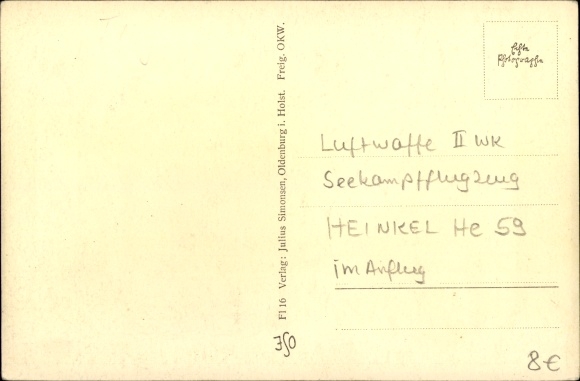 Fl 16 Verlag: Julius Simonsen, Oldenburg i. Holst. Freig. OKW.
Echte
Photographie
Luftwaffe II WK
Seekampfflugzeug
HEINKEL He 59
im Anflug
350
8€